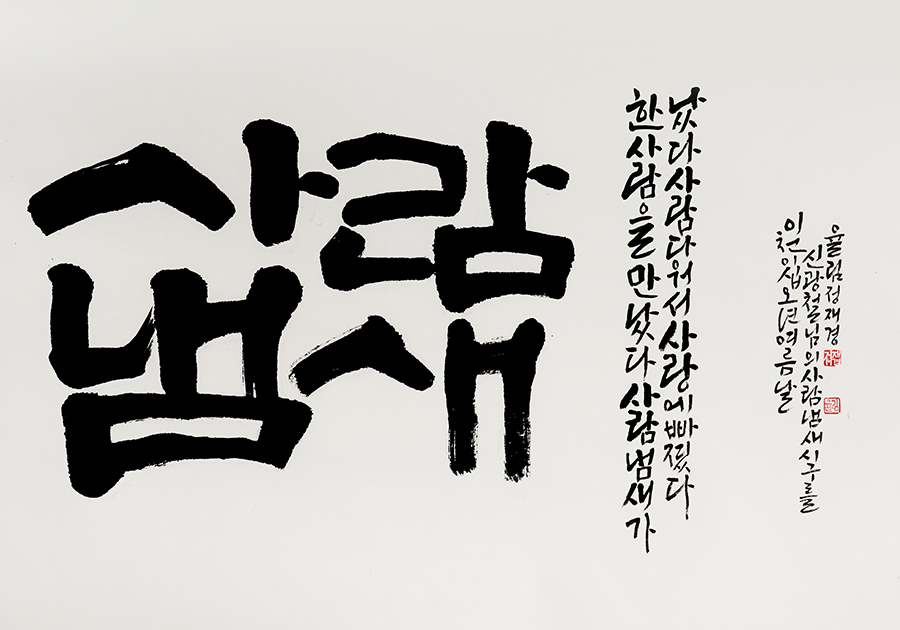 사람
냄새
한사람을만났다사람냄새가
났다사람다워서사랑에빠졌다
이천이십오년여름날
신광철님의사람냄새싯구를
율림정재경